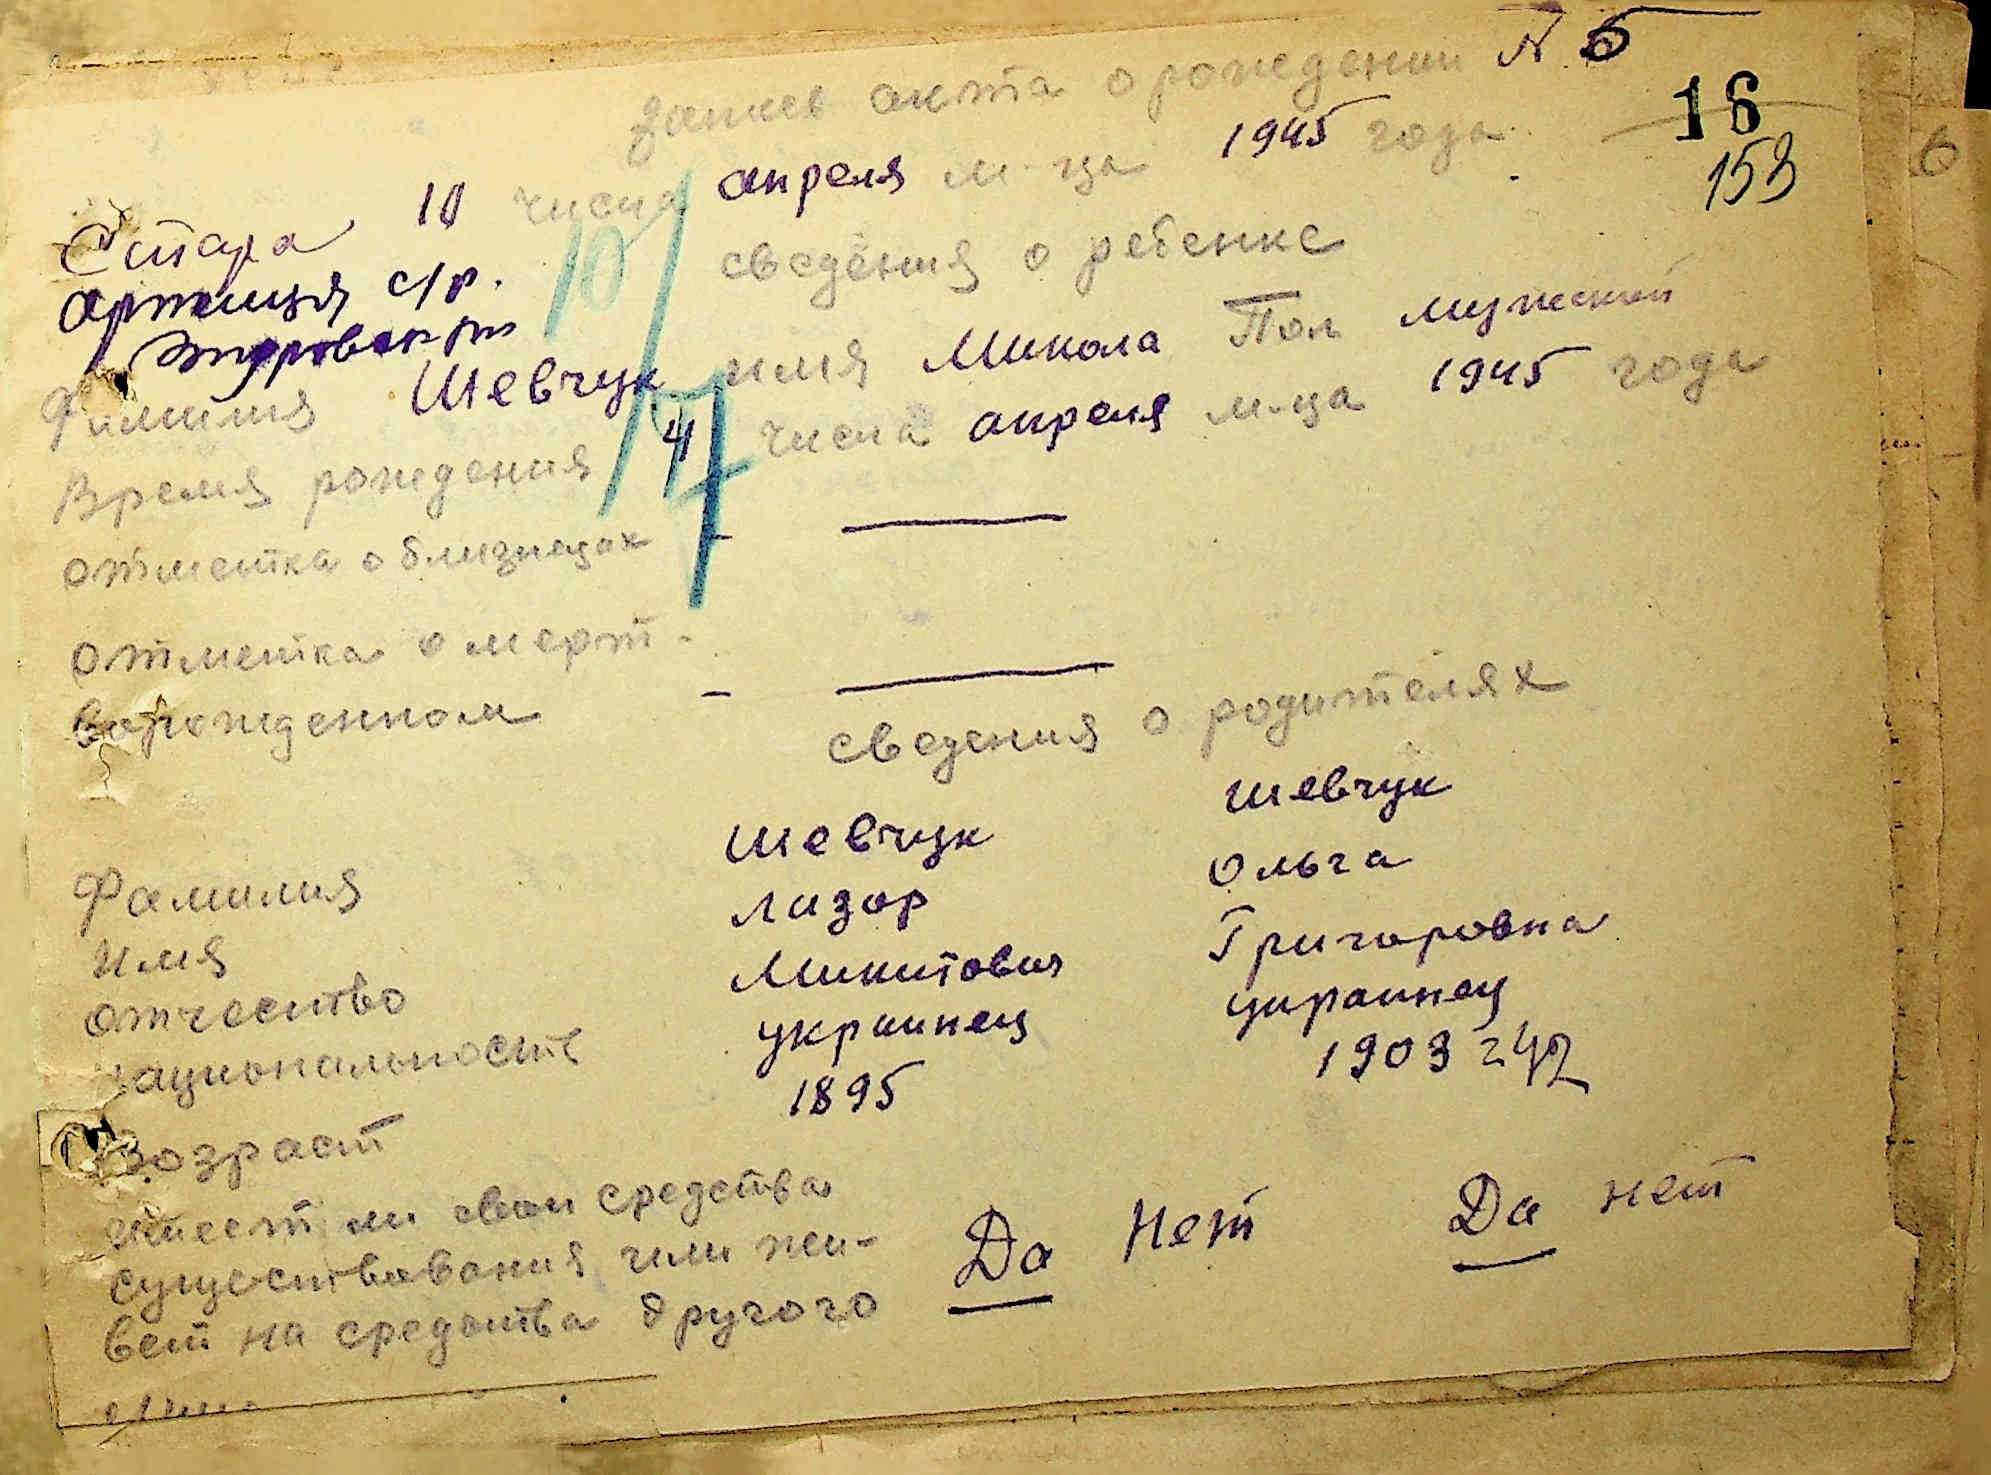 запись акта о рождении N 5
16
153
10 числа апреля м-ца 1945 года
Стара
Артемия с/р.
10/
сведения о ребенке
Фамилия Шевчук имя Микола Пол мужской
Время рождения 4 числа апреля м-ца 1945 года
отметка о близнецах - —
отметка о мерт-
ворожденном - —
сведения о родителях
Фамилия Шевчук Шевчук
имя Лазар Ольга
отчество Микитович Григоровна
национальность украинец украинец
Возраст 1895 1903 г 42
имеет ли свои средства
существования или жи- Да Нет Да нет
вет на средства другого
6